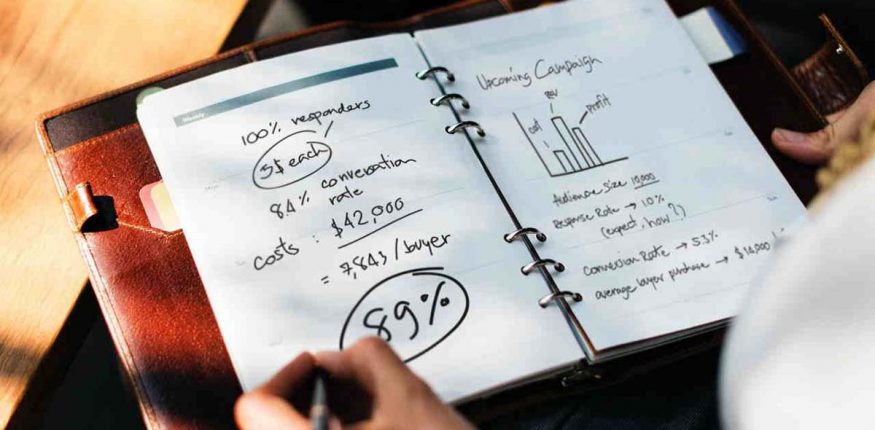 Weekly
100% responders
5$ each
84% conversation
rate
costs : $42,000
= 7,843 / buyer
89%
Upcoming Campaign
cost
Rev
Profit
Audience Size 10,000
Response Rate → 10%
(expect, how?)
Conversion Rate → 5.3%
average buyer purchase → $14,000